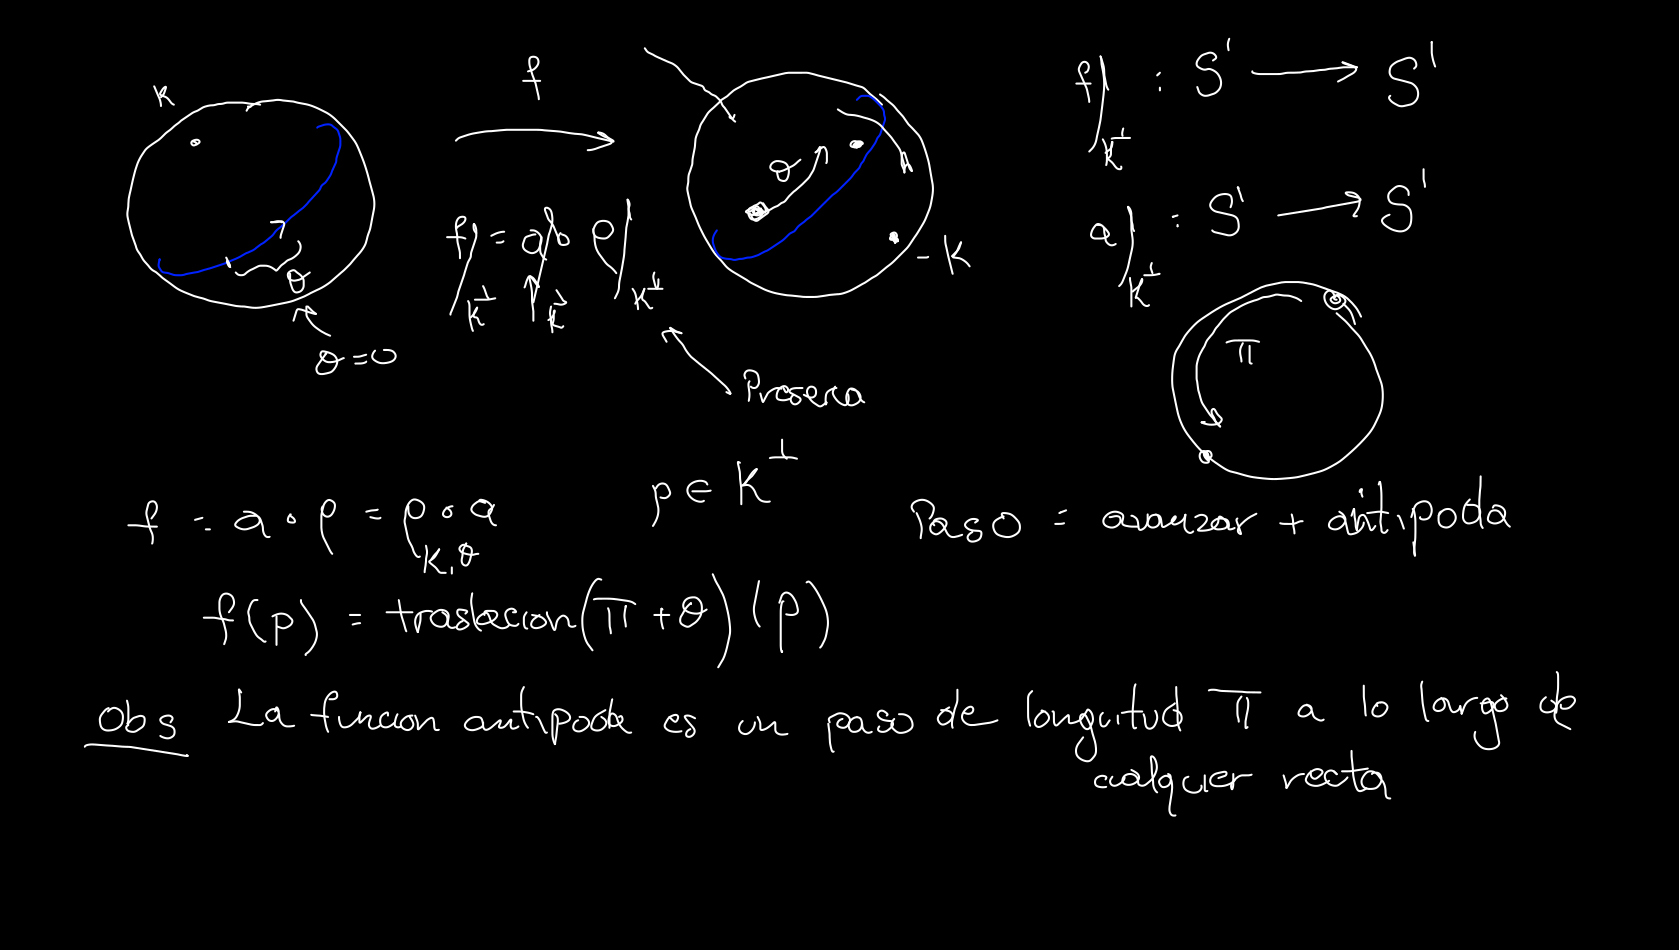 K
f
f|K⊥ = a|K⊥ ∘ ρ|K⊥
θ
θ = 0
θ
-K
Preserva
f|K⊥ : S¹ → S¹
a|K⊥ : S¹ → S¹
π
p ∈ K⊥
f = a ∘ ρ = ρK,θ ∘ a
Paso = avanzar + antipoda
f(p) = traslacion(π + θ)(p)
Obs La funcion antipoda es un paso de longuitud π a lo largo de
cualquier recta